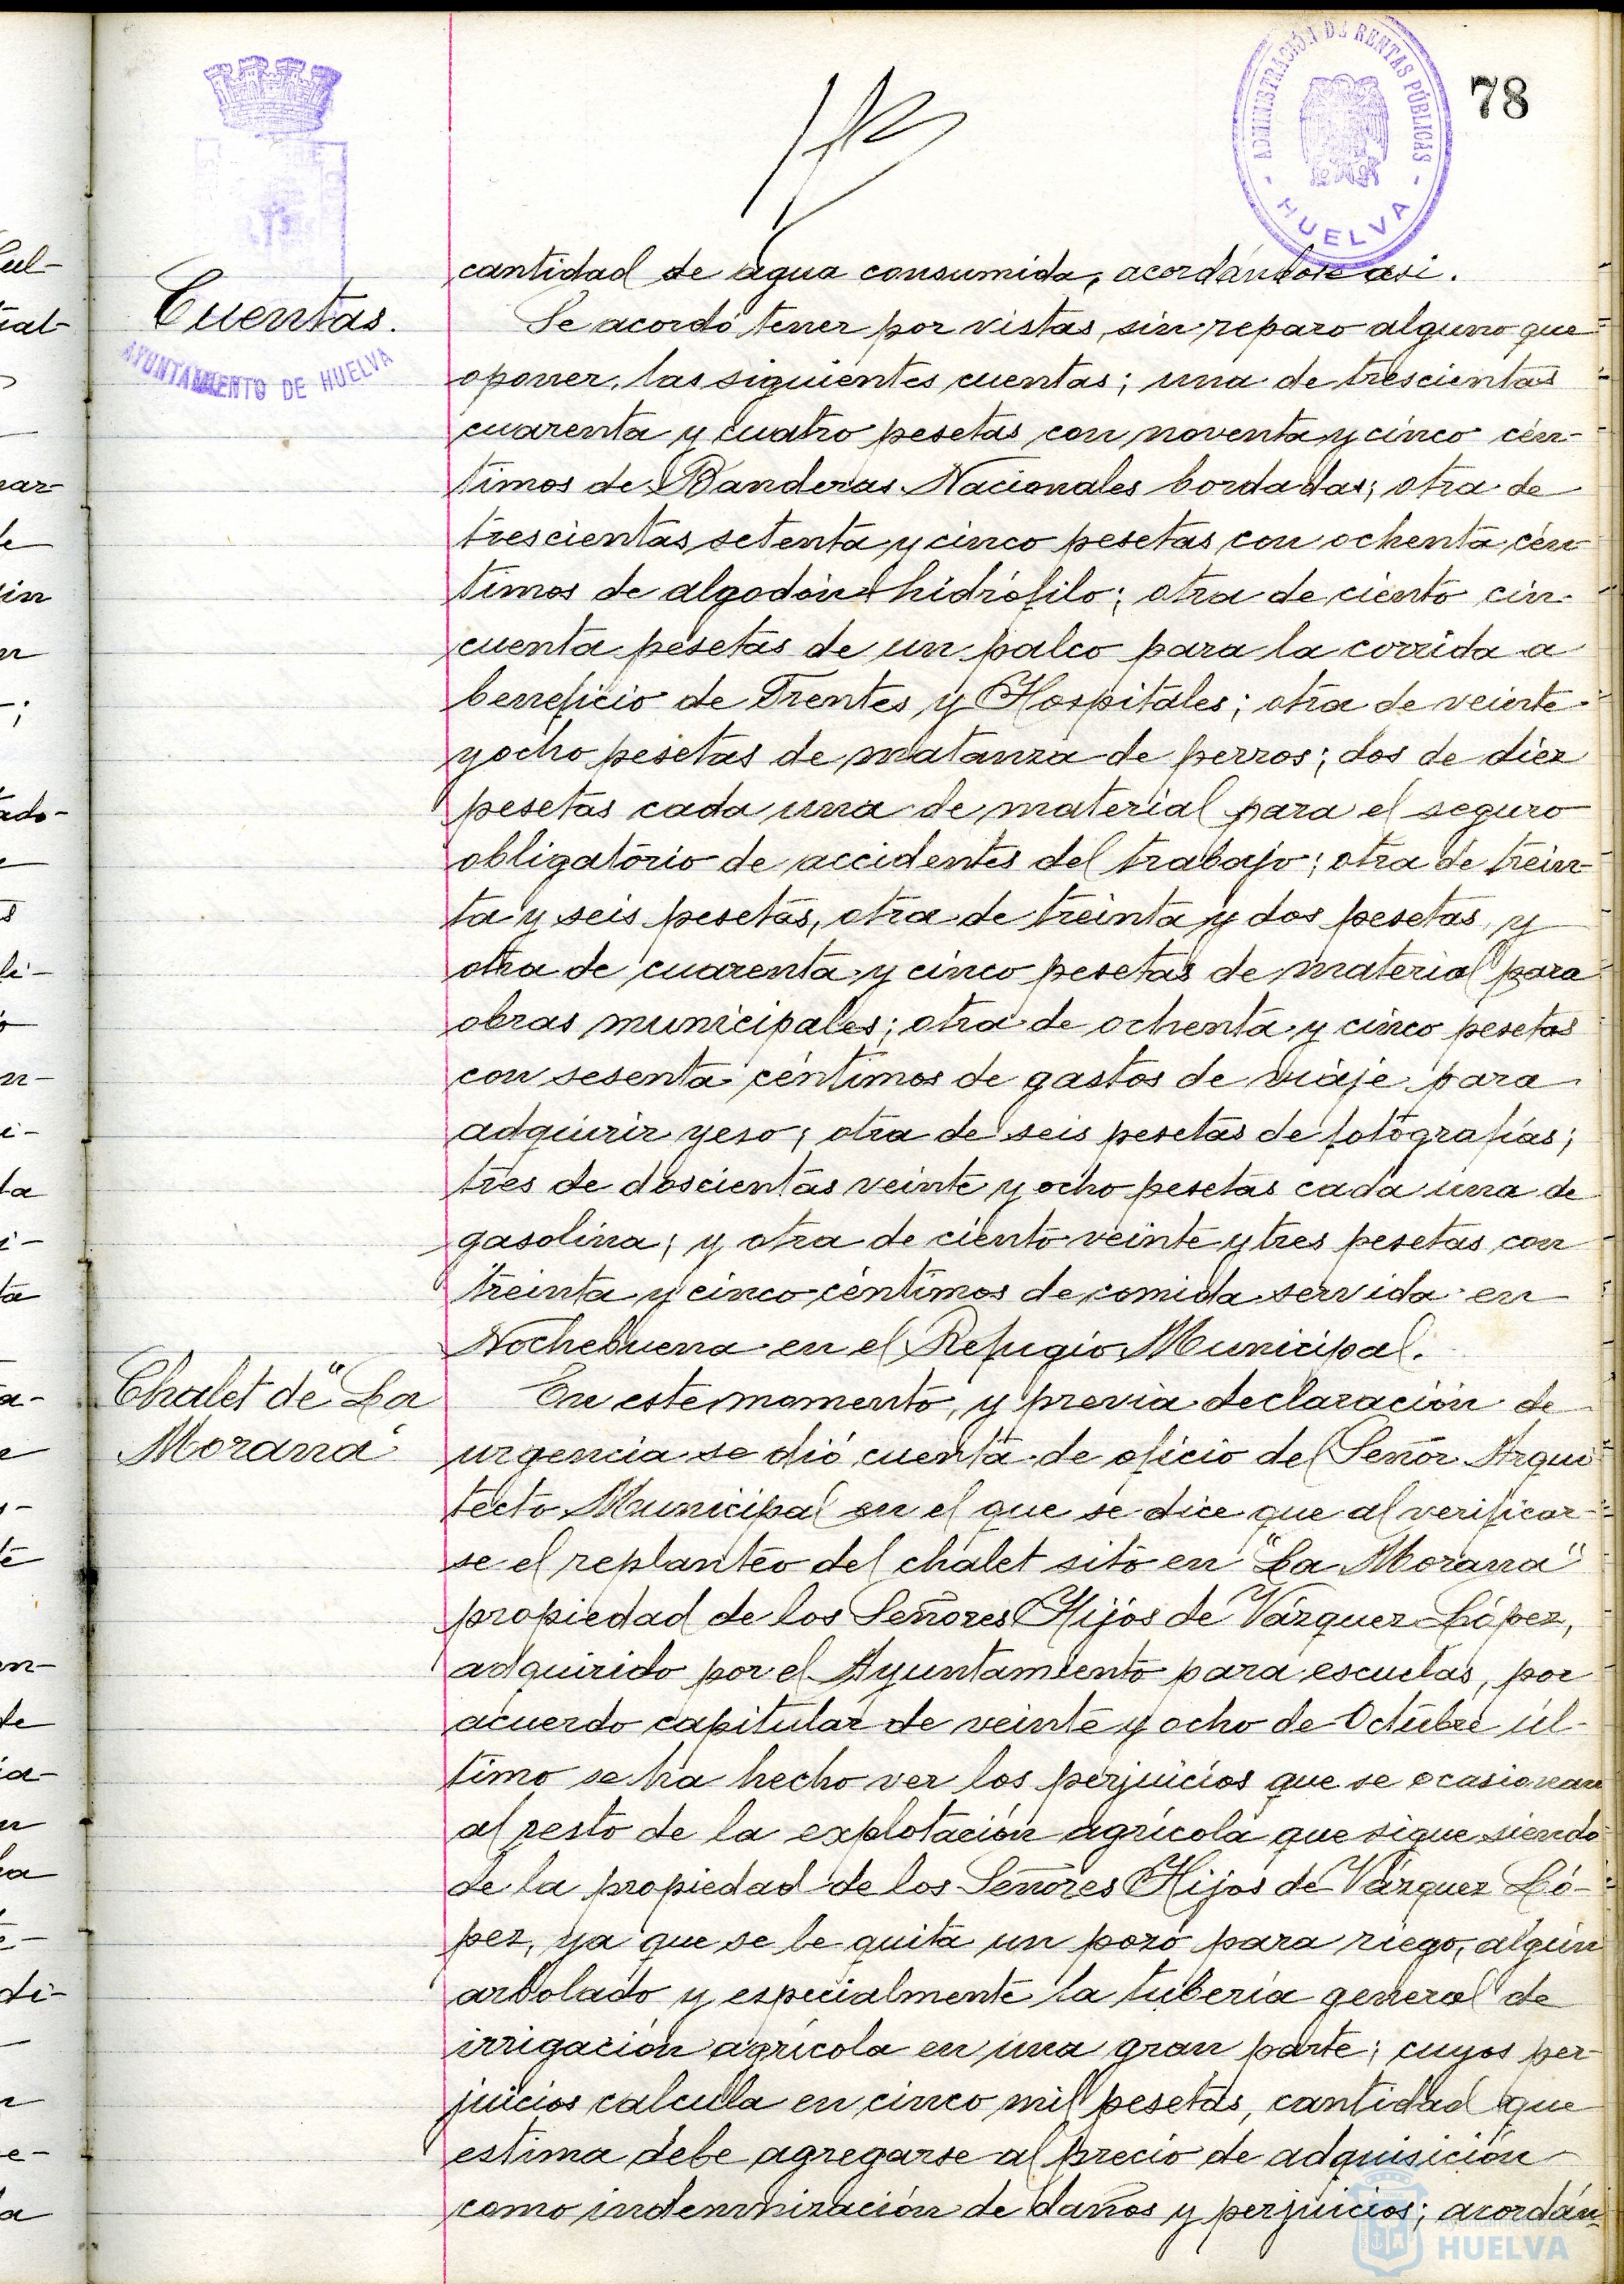 78
ADMINISTRACIÓN DE RENTAS PÚBLICAS
- HUELVA -
cantidad de agua consumida, acordándose asi.
Cuentas.
AYUNTAMIENTO DE HUELVA
Se acordó tener por vistas, sin reparo alguno que
oponer, las siguientes cuentas; una de trescientas
cuarenta y cuatro pesetas con noventa y cinco cén-
timos de Banderas Nacionales bordadas; otra de
trescientas setenta y cinco pesetas con ochenta cén
timos de algodón hidrófilo; otra de ciento cin-
cuenta pesetas de un palco para la corrida a
beneficio de Frentes y Hospitales; otra de veinte
y ocho pesetas de matanza de perros; dos de diez
pesetas cada una de material para el seguro
obligatorio de accidentes del trabajo; otra de trein-
ta y seis pesetas, otra de treinta y dos pesetas, y
otra de cuarenta y cinco pesetas de material para
obras municipales; otra de ochenta y cinco pesetas
con sesenta céntimos de gastos de viaje para
adquirir yeso; otra de seis pesetas de fotografías;
tres de doscientas veinte y ocho pesetas cada una de
gasolina; y otra de ciento veinte y tres pesetas con
treinta y cinco céntimos de comida servida en
Nochebuena en el Refugio Municipal.
Chalet de "La
Morana"
En este momento, y previa declaración de
urgencia se dió cuenta de oficio del Señor Arqui
tecto Municipal en el que se dice que al verificar-
se el replanteo del chalet sito en "La Morana"
propiedad de los Señores Hijos de Vázquez López,
adquirido por el Ayuntamiento para escuelas, por
acuerdo capitular de veinte y ocho de Octubre úl-
timo se ha hecho ver los perjuicios que se ocasionan
al resto de la explotación agrícola que sigue siendo
de la propiedad de los Señores Hijos de Vázquez Ló-
pez, ya que se le quita un pozo para riego, algún
arbolado y especialmente la tubería general de
irrigación agrícola en una gran parte; cuyos per-
juicios calcula en cinco mil pesetas, cantidad que
estima debe agregarse al precio de adquisición
como indemnización de daños y perjuicios; acordán-
Ayuntamiento de
HUELVA